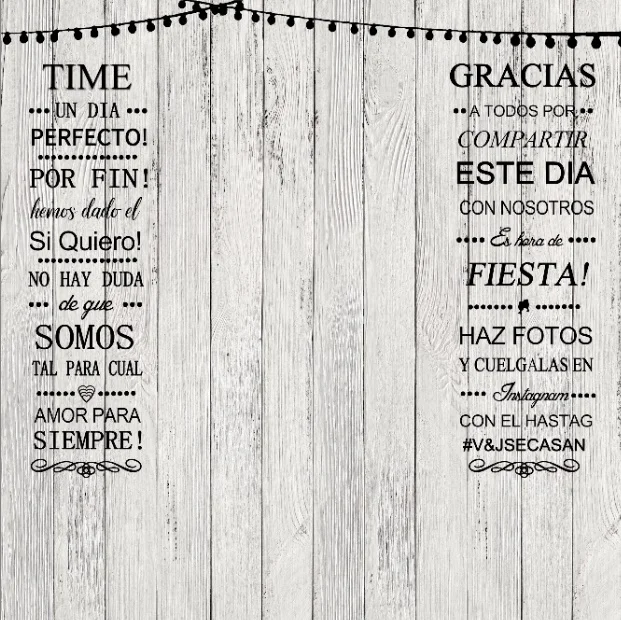 TIME
UN DIA
PERFECTO!
POR FIN!
hemos dado el
Si Quiero!
NO HAY DUDA
de que
SOMOS
TAL PARA CUAL
AMOR PARA
SIEMPRE!
GRACIAS
A TODOS POR
COMPARTIR
ESTE DIA
CON NOSOTROS
Es hora de
FIESTA!
HAZ FOTOS
Y CUELGALAS EN
Instagram
CON EL HASTAG
#V&JSECASAN